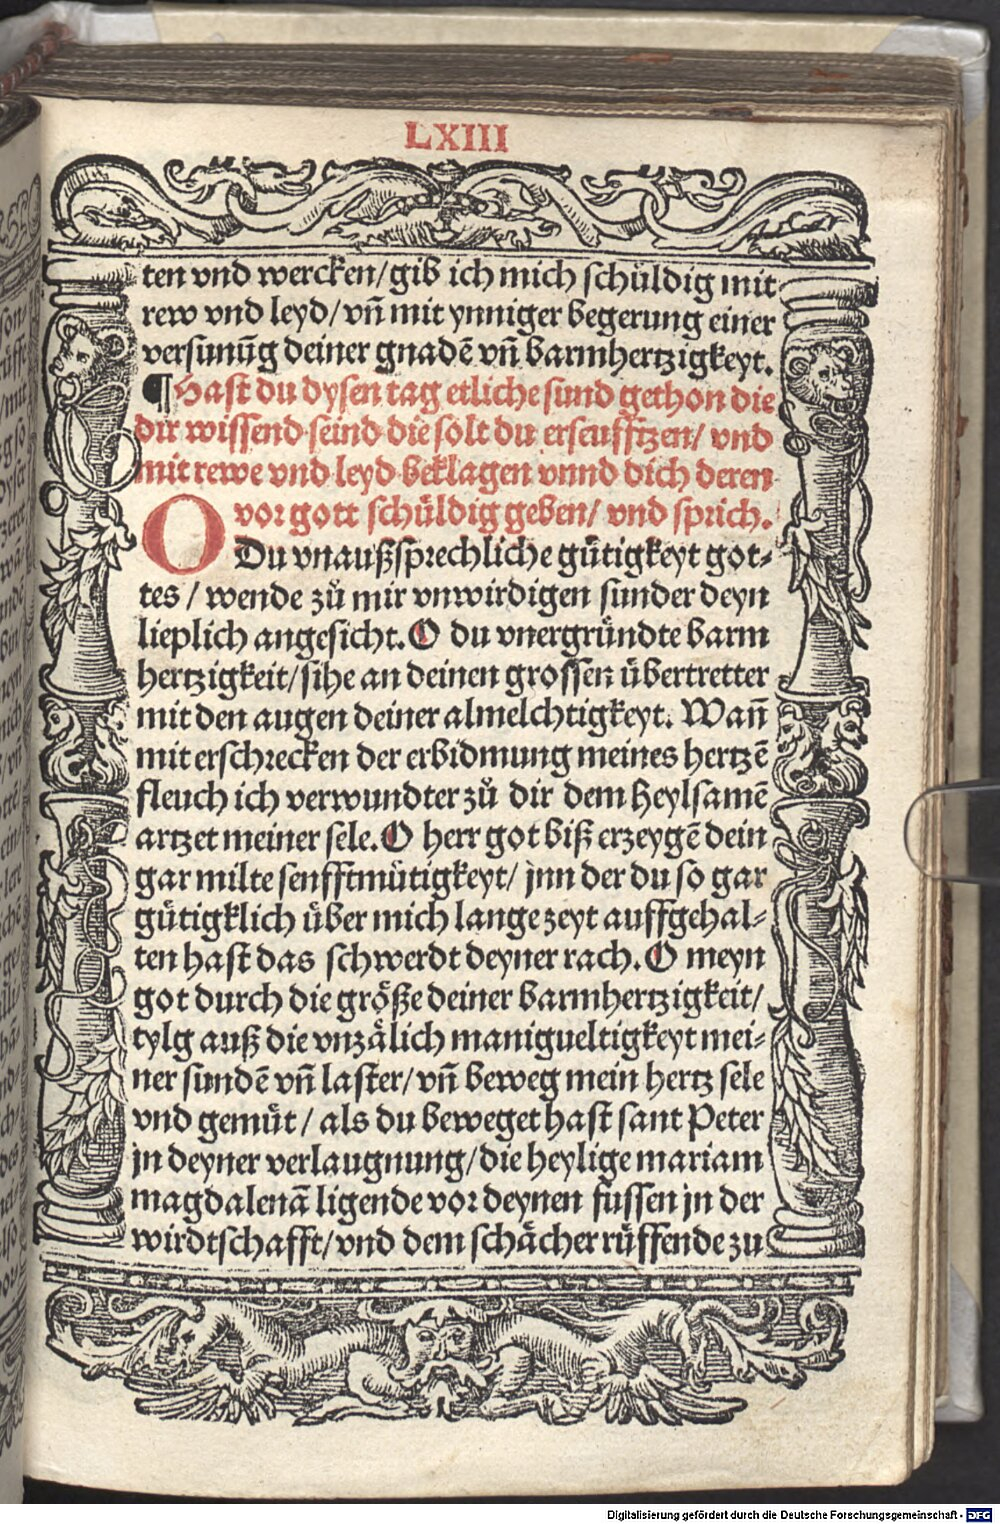 LXIII
ten vnd wercken/gib ich mich schüldig mit
rew vnd leyd/vn̄ mit ynniger begerung einer
versunūg deiner gnadē vn̄ barmhertzigkeyt.
¶Hast du dysen tag etliche sund gethon die
dir wissend seind die solt du erseufftzen/ vnd
mit rewe vnd leyd beklagen vnnd dich deren
vor gott schüldig geben/ vnd sprich.
O Du vnaußsprechliche gütigkeyt got-
tes / wende zů mir vnwirdigen sunder deyn
lieplich angesicht. O du vnergründte barm
hertzigkeit/sihe an deinen grossen übertretter
mit den augen deiner almelchtigkeyt. Wan̄
mit erschrecken der erbidmung meines hertzē
fleuch ich verwundter zů dir dem heylsamē
artzet meiner sele. O herr got biß erzeygē dein
gar milte senfftmütigkeyt/ jnn der du so gar
gütigklich über mich lange zeyt auffgehal-
ten hast das schwerdt deyner rach. O meyn
got durch die größe deiner barmhertzigkeit/
tylg auß die vnzälich manigueltigkeyt mei-
ner sundē vn̄ laster/vn̄ beweg mein hertz sele
vnd gemüt / als du beweget hast sant Peter
jn deyner verlaugnung/die heylige mariam
magdalenā ligende vor deynen füssen jn der
wirdtschafft/vnd dem schächer rüffende zu
Digitalisierung gefördert durch die Deutsche Forschungsgemeinschaft - DFG